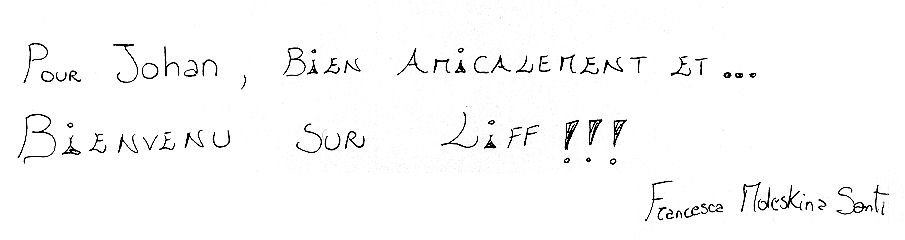 Pour Johan, Bien Amicalement et...
Bienvenu sur Liff !!!
Francesca Moleskina Santi